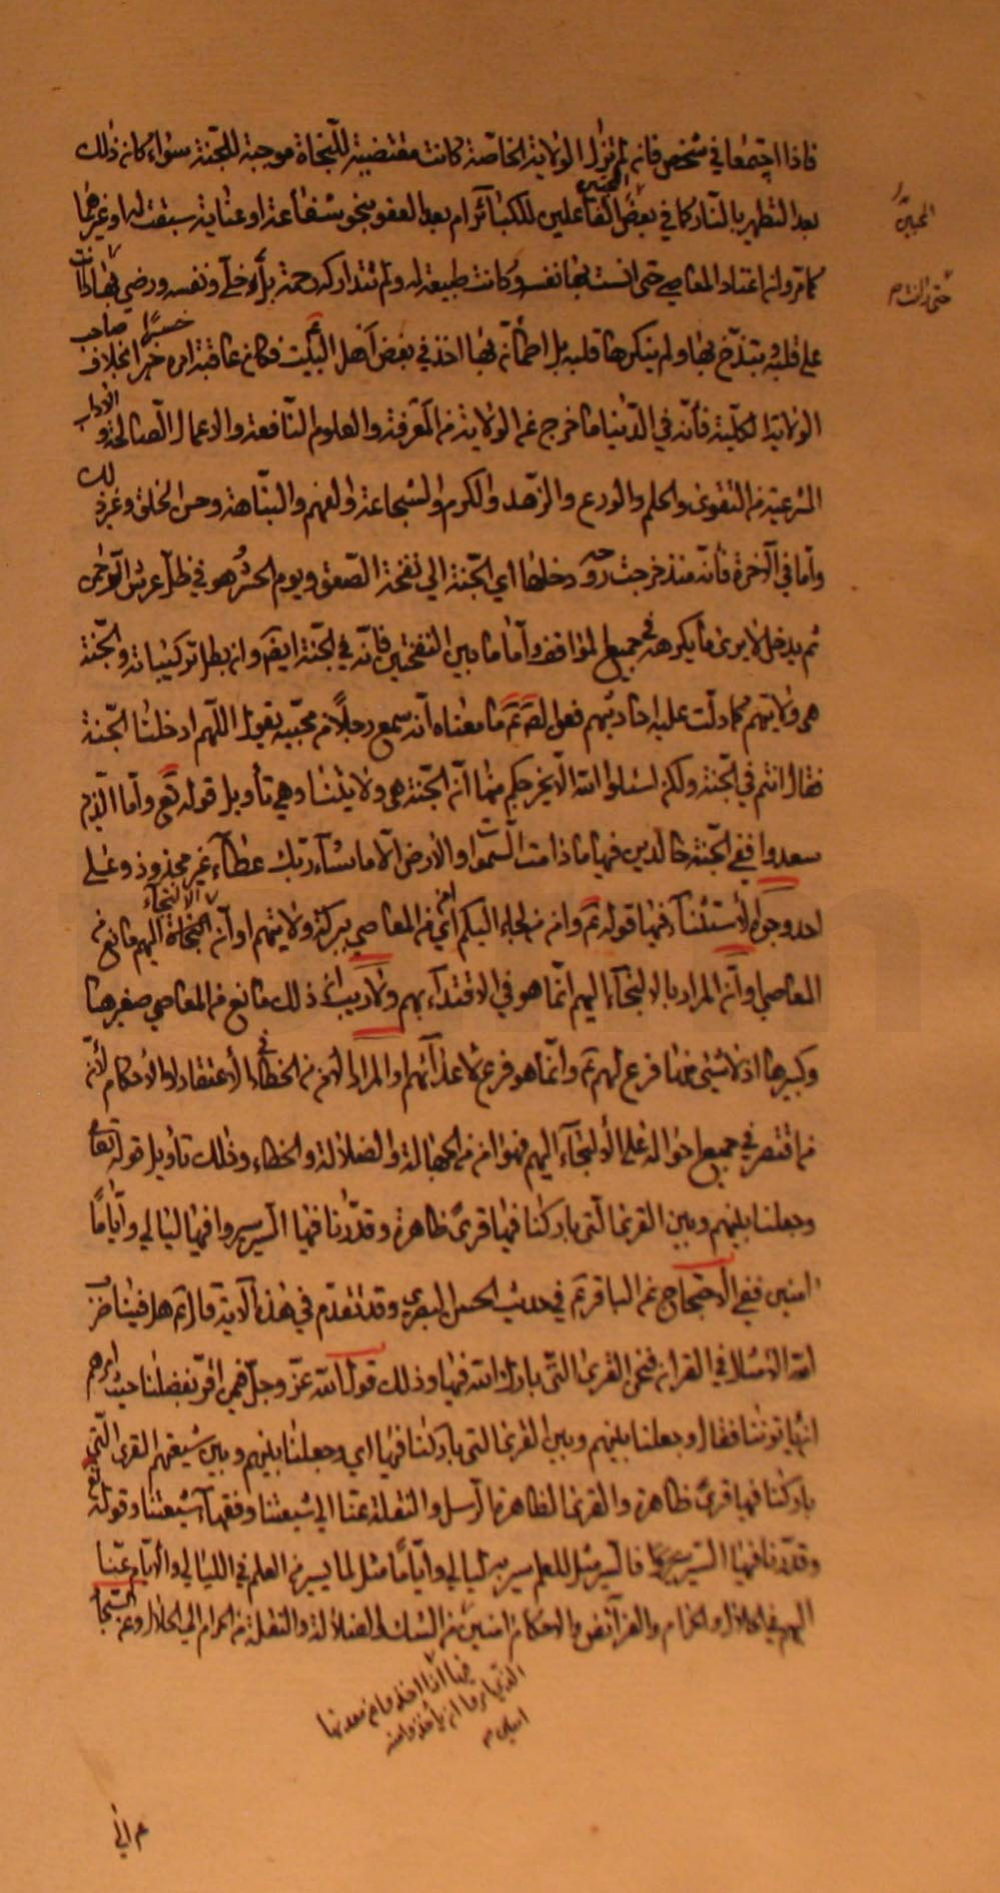 فاذا اجتمعا في شخص فانه لم تزل الولاية الخاصة كانت مقتضية للنجاة موجبة للجنة سواء كان ذلك
المحبين
بعد التطهير بالنار كما في بعض الفاعلين للكبائر ام بعد العفو بنحو شفاعة او عناية سبقت له او غيرهما
كما مر وان اعتاد المعاصي حتى انست بها نفسه وكانت طبيعة له ولم تتداركه رحمة بل خلي ونفسه ورضي بها
على قلبه ولم ينكرها قلبه بل اطمأن بها اخذ في بعض اهل البيت فكان عاقبة امره خسرا بخلاف صاحب
الولاية الكلية فانه في الدنيا ما خرج عن الولاية من المعرفة والعلوم النافعة والاعمال الصالحة والاداب
الشرعية من التقوى والحلم والورع والزهد والكرم والشجاعة والفهم والنباهة وحسن الخلق وغير ذلك
واما في الآخرة فانه منذ خرجت روحه دخلها اي الجنة الى نفخة الصعق ويوم الحشر هو في ظل عرش الرحمن
ثم يدخل لا يرى ما يكرهه في جميع المواقف واما ما بين النفختين فانه في الجنة ايضا وان بطل تركيباته والجنة
هي ولايتهم كما دلت عليه احاديثهم فعن الصم ما معناه انه سمع رجلا من محبيه يقول اللهم ادخلنا الجنة
فقال انتم في الجنة ولكن اسئلوا الله الا يخرجكم منها ان الجنة هي ولايتنا وهي تأويل قوله تع واما الذين
سعدوا ففي الجنة خالدين فيها ما دامت السموات والارض الا ما شاء ربك عطاء غير مجذوذ وعلى
احد وجوه الاستثناء فيها قوله وامن من لجاء اليكم اي امن من المعاصي ببركة ولايتهم او ان الالتجاء اليهم مانع من
المعاصي او ان المراد بالالتجاء اليهم انما هو في الاقتداء بهم ولا ريب ان ذلك مانع من المعاصي صغيرها
وكبيرها اذ لا شئ منها فرع لهم وانما هو فرع لاعدائهم او المراد الامن من الخطاء في الاعتقاد او الاحكام لان
من اقتصر في جميع احواله على الالتجاء اليهم فهو امن من الجهالة والضلالة والخطاء وذلك تأويل قوله تعالى
وجعلنا بينهم وبين القرى التي باركنا فيها قرى ظاهرة وقدرنا فيها السير سيروا فيها ليالي واياما
امنين ففي الاحتجاج عن الباقر في حديث الحسن البصري وقد تقدم في هذه الآية قال بل فينا ضرب
الله الامثال في القرآن فنحن القرى التي بارك الله فيها وذلك قول الله عز وجل فيمن اقر بفضلنا حيث امرهم
ان يأتونا فقال وجعلنا بينهم وبين القرى التي باركنا فيها اي وجعلنا بينهم وبين شيعتهم القرى التي
باركنا فيها قرى ظاهرة والقرى الظاهرة الرسل والنقلة عنا الى شيعتنا وفقهاء شيعتنا وقوله تع
وقدرنا فيها السير فالسير مثل للعلم سير به ليالي واياما مثل لما يسير من العلم في الليالي والايام عنا
اليهم في الحلال والحرام والفرائض والاحكام امنين من الشك والضلالة والنقلة من الحرام الى الحلال
فيها اذا اخذوا من معدنها
الذي امروا ان يأخذوا منه
امنين